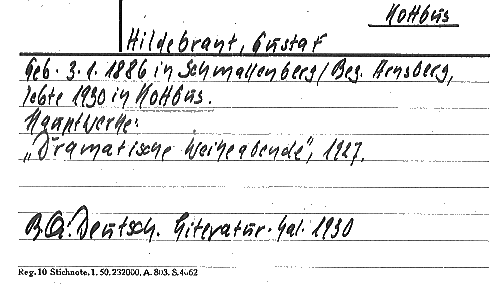 Kottbus
Hildebrant, Gustav
Geb. 3.1.1886 in Schmallenberg/Bez. Arnsberg,
lebte 1930 in Kottbus.
Hauptwerke:
„Dramatische Weiheabende", 1927.
B.Q.: Deutsch. Literatur-Kal. 1930
Reg. 10 Stichnote. 1. 50. 232000. A. 803. S. 4062